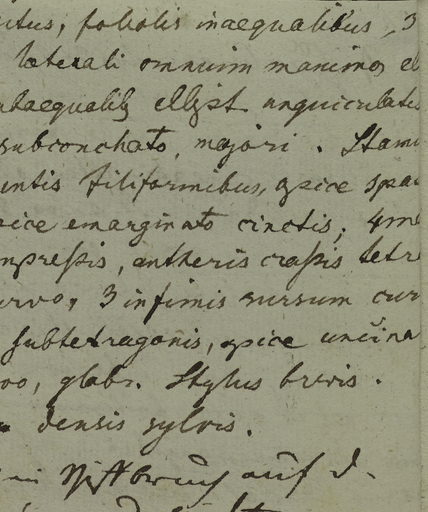 itus, foliolis inaequalibus, 3
laterali omnium maximo, el
subaequalib ellipt. unguiculatis
subconchato, majori. Stam
untis filiformibus, apice spa
pice emarginato cinctis; 4m
mpressis, antheris crassis tetr
urvo, 3 infimis sursum cur
subtetragonis, apice uncina
oo, glabr. Stylus brevis.
densis sylvis.
in auf d.